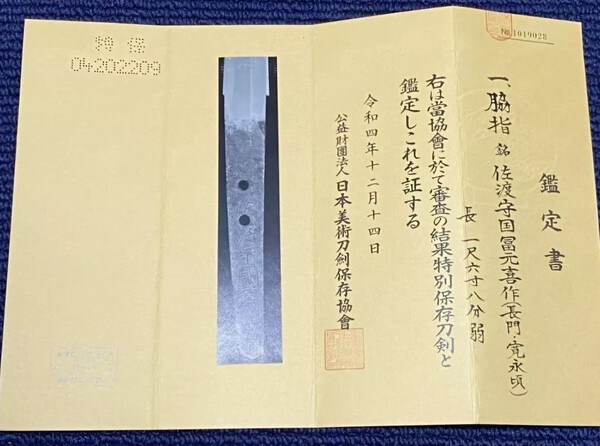 № 1019028
鑑定書
一、脇指 銘 佐渡守国冨元喜作(長門・寛永頃)
長 一尺六寸八分弱
右は當協會に於て審査の結果特別保存刀剣と
鑑定しこれを証する
令和四年十二月十四日
公益財團法人 日本美術刀剣保存協會
特保
04202209